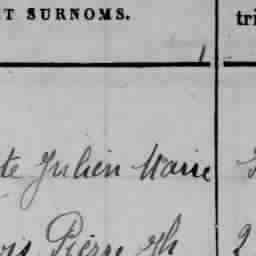 T SURNOMS. tri
te Julien Marie
is Pierre Jh 2